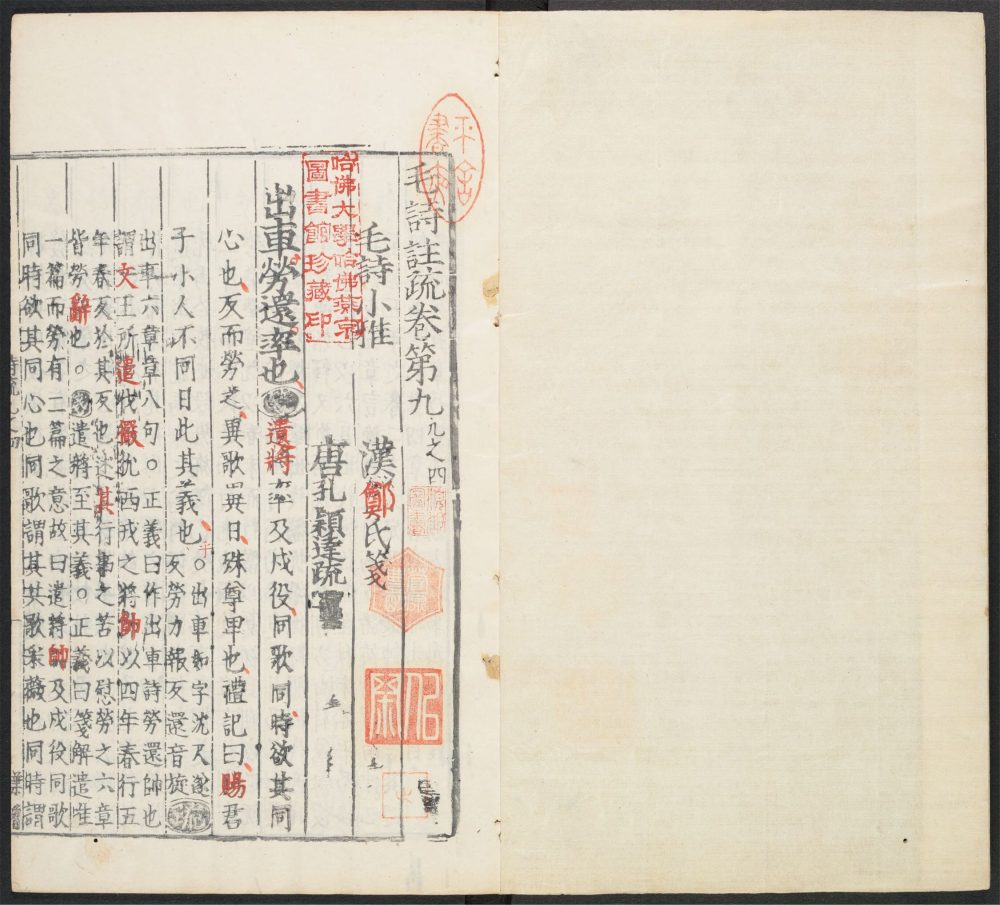 毛詩註疏卷第九 九之四
毛詩小雅 漢鄭氏箋
唐孔穎達疏
出車勞還率也 遣將率及戍役同歌同時欲其同
心也反而勞之異歌異日殊尊卑也禮記曰賜君
子小人不同日此其義也 ○出車如字沈尺遂
反勞力報反還音旋 疏
出車六章章八句○正義曰作出車詩勞還帥也
謂文王所遣伐玁狁西戎之將帥以四年春行五
年春反於其反也述其行事之苦以慰勞之六章
皆勞辭也○ 遣將至其義○正義曰箋解遣唯
一篇而勞有二篇之意故曰遣將帥及戍役同歌
同時欲其同心也同歌謂其共歌采薇也同時謂
哈佛大學哈佛燕京
圖書館珍藏印